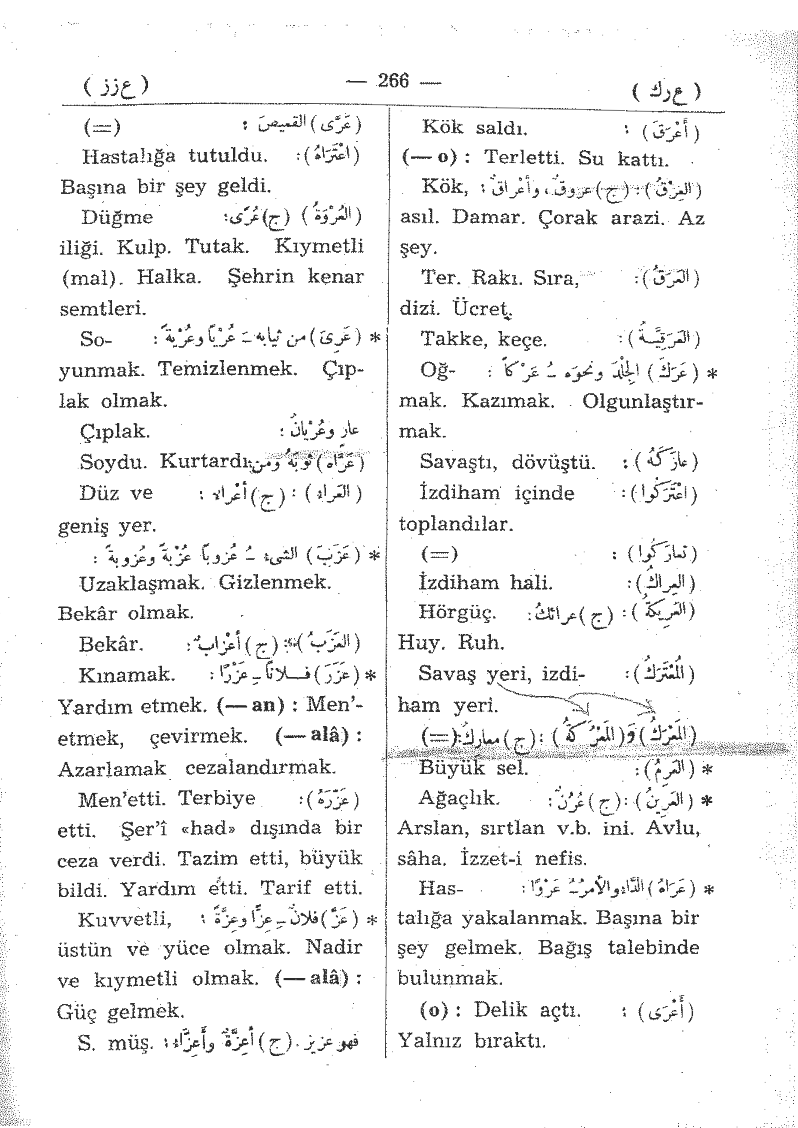 ( عرك ) — 266 — ( عزز )
(أَعْرَقَ) : Kök saldı.
(— o) : Terletti. Su kattı.
(العِرْقُ) : (ج) عروقٌ، وأَعْراقٌ : Kök,
asıl. Damar. Çorak arazi. Az
şey.
(العَرَقُ) : Ter. Rakı. Sıra,
dizi. Ücret.
(العَرَقِيَّةُ) : Takke, keçe.
* (عَرَكَ) الجِلْدَ ونحوَه ـُ عَرْكاً : Oğ-
mak. Kazımak. Olgunlaştır-
mak.
(عارَكَهُ) : Savaştı, dövüştü.
(اعْتَرَكُوا) : İzdiham içinde
toplandılar.
(تَعارَكُوا) : (=)
(العِراكُ) : İzdiham hâli.
(العَرِيكَةُ) : (ج) عرائكُ : Hörgüç.
Huy. Ruh.
(المُعْتَرَكُ) : Savaş yeri, izdi-
ham yeri.
(المَعْرَكُ) وَ(المَعْرَكَةُ) : (ج) معاركُ : (=)
* (العَرِمُ) : Büyük sel.
* (العَرِينُ) : (ج) عُرُنٌ : Ağaçlık.
Arslan, sırtlan v.b. ini. Avlu,
sâha. İzzet-i nefis.
* (عَرَاهُ) الدَّاءُ والأمرُ ـُ عَرْوًا : Has-
talığa yakalanmak. Başına bir
şey gelmek. Bağış talebinde
bulunmak.
(أَعْرَى) : (o) : Delik açtı.
Yalnız bıraktı.
(عَرَّى) القميصَ : (=)
(اعْتَرَاهُ) : Hastalığa tutuldu.
Başına bir şey geldi.
(العُرْوَةُ) (ج) عُرًى : Düğme
iliği. Kulp. Tutak. Kıymetli
(mal). Halka. Şehrin kenar
semtleri.
* (عَرِيَ) من ثيابه ـَ عُرْيًا وعُرْيَةً : So-
yunmak. Temizlenmek. Çıp-
lak olmak.
عارٍ وعُرْيانٌ : Çıplak.
(عَرَّاه) ثوبَهُ ومن : Soydu. Kurtardı
(العَراء) : (ج) أَعْراء : Düz ve
geniş yer.
* (عَزَبَ) الشيء ـُ عُزوباً عُزْبةً وعُزوبةً :
Uzaklaşmak. Gizlenmek.
Bekâr olmak.
(العَزَبُ) : (ج) أعْزابٌ : Bekâr.
* (عَزَرَ) فلاناً ـِ عَزْرًا : Kınamak.
Yardım etmek. (— an) : Men'-
etmek, çevirmek. (— alâ) :
Azarlamak cezalandırmak.
(عَزَّرَهُ) : Men'etti. Terbiye
etti. Şer'î «had» dışında bir
ceza verdi. Tazim etti, büyük
bildi. Yardım etti. Tarif etti.
* (عَزَّ) فلانٌ ـِ عِزًّا وعِزَّةً : Kuvvetli,
üstün ve yüce olmak. Nadir
ve kıymetli olmak. (— alâ) :
Güç gelmek.
فهو عزيز. (ج) أعِزَّةٌ وأَعِزَّاء : S. müş.